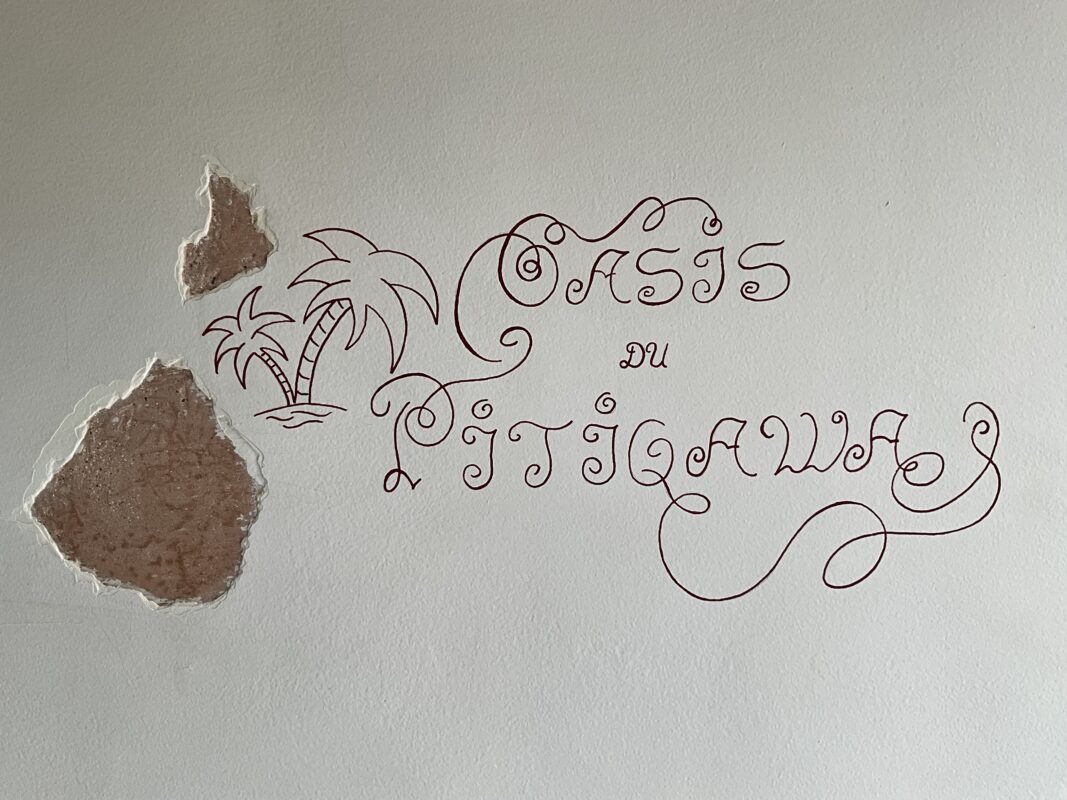 OASIS
DU
PITIGAWA